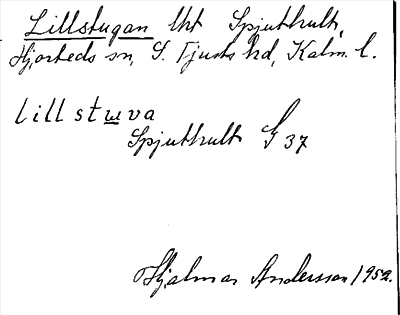 Lillstugan lht Spjuthult,
Hjorteds sn, S. Tjusts hd, Kalm. l.
lillstuva
Spjuthult G 37
Hjalmar Andersson 1952.